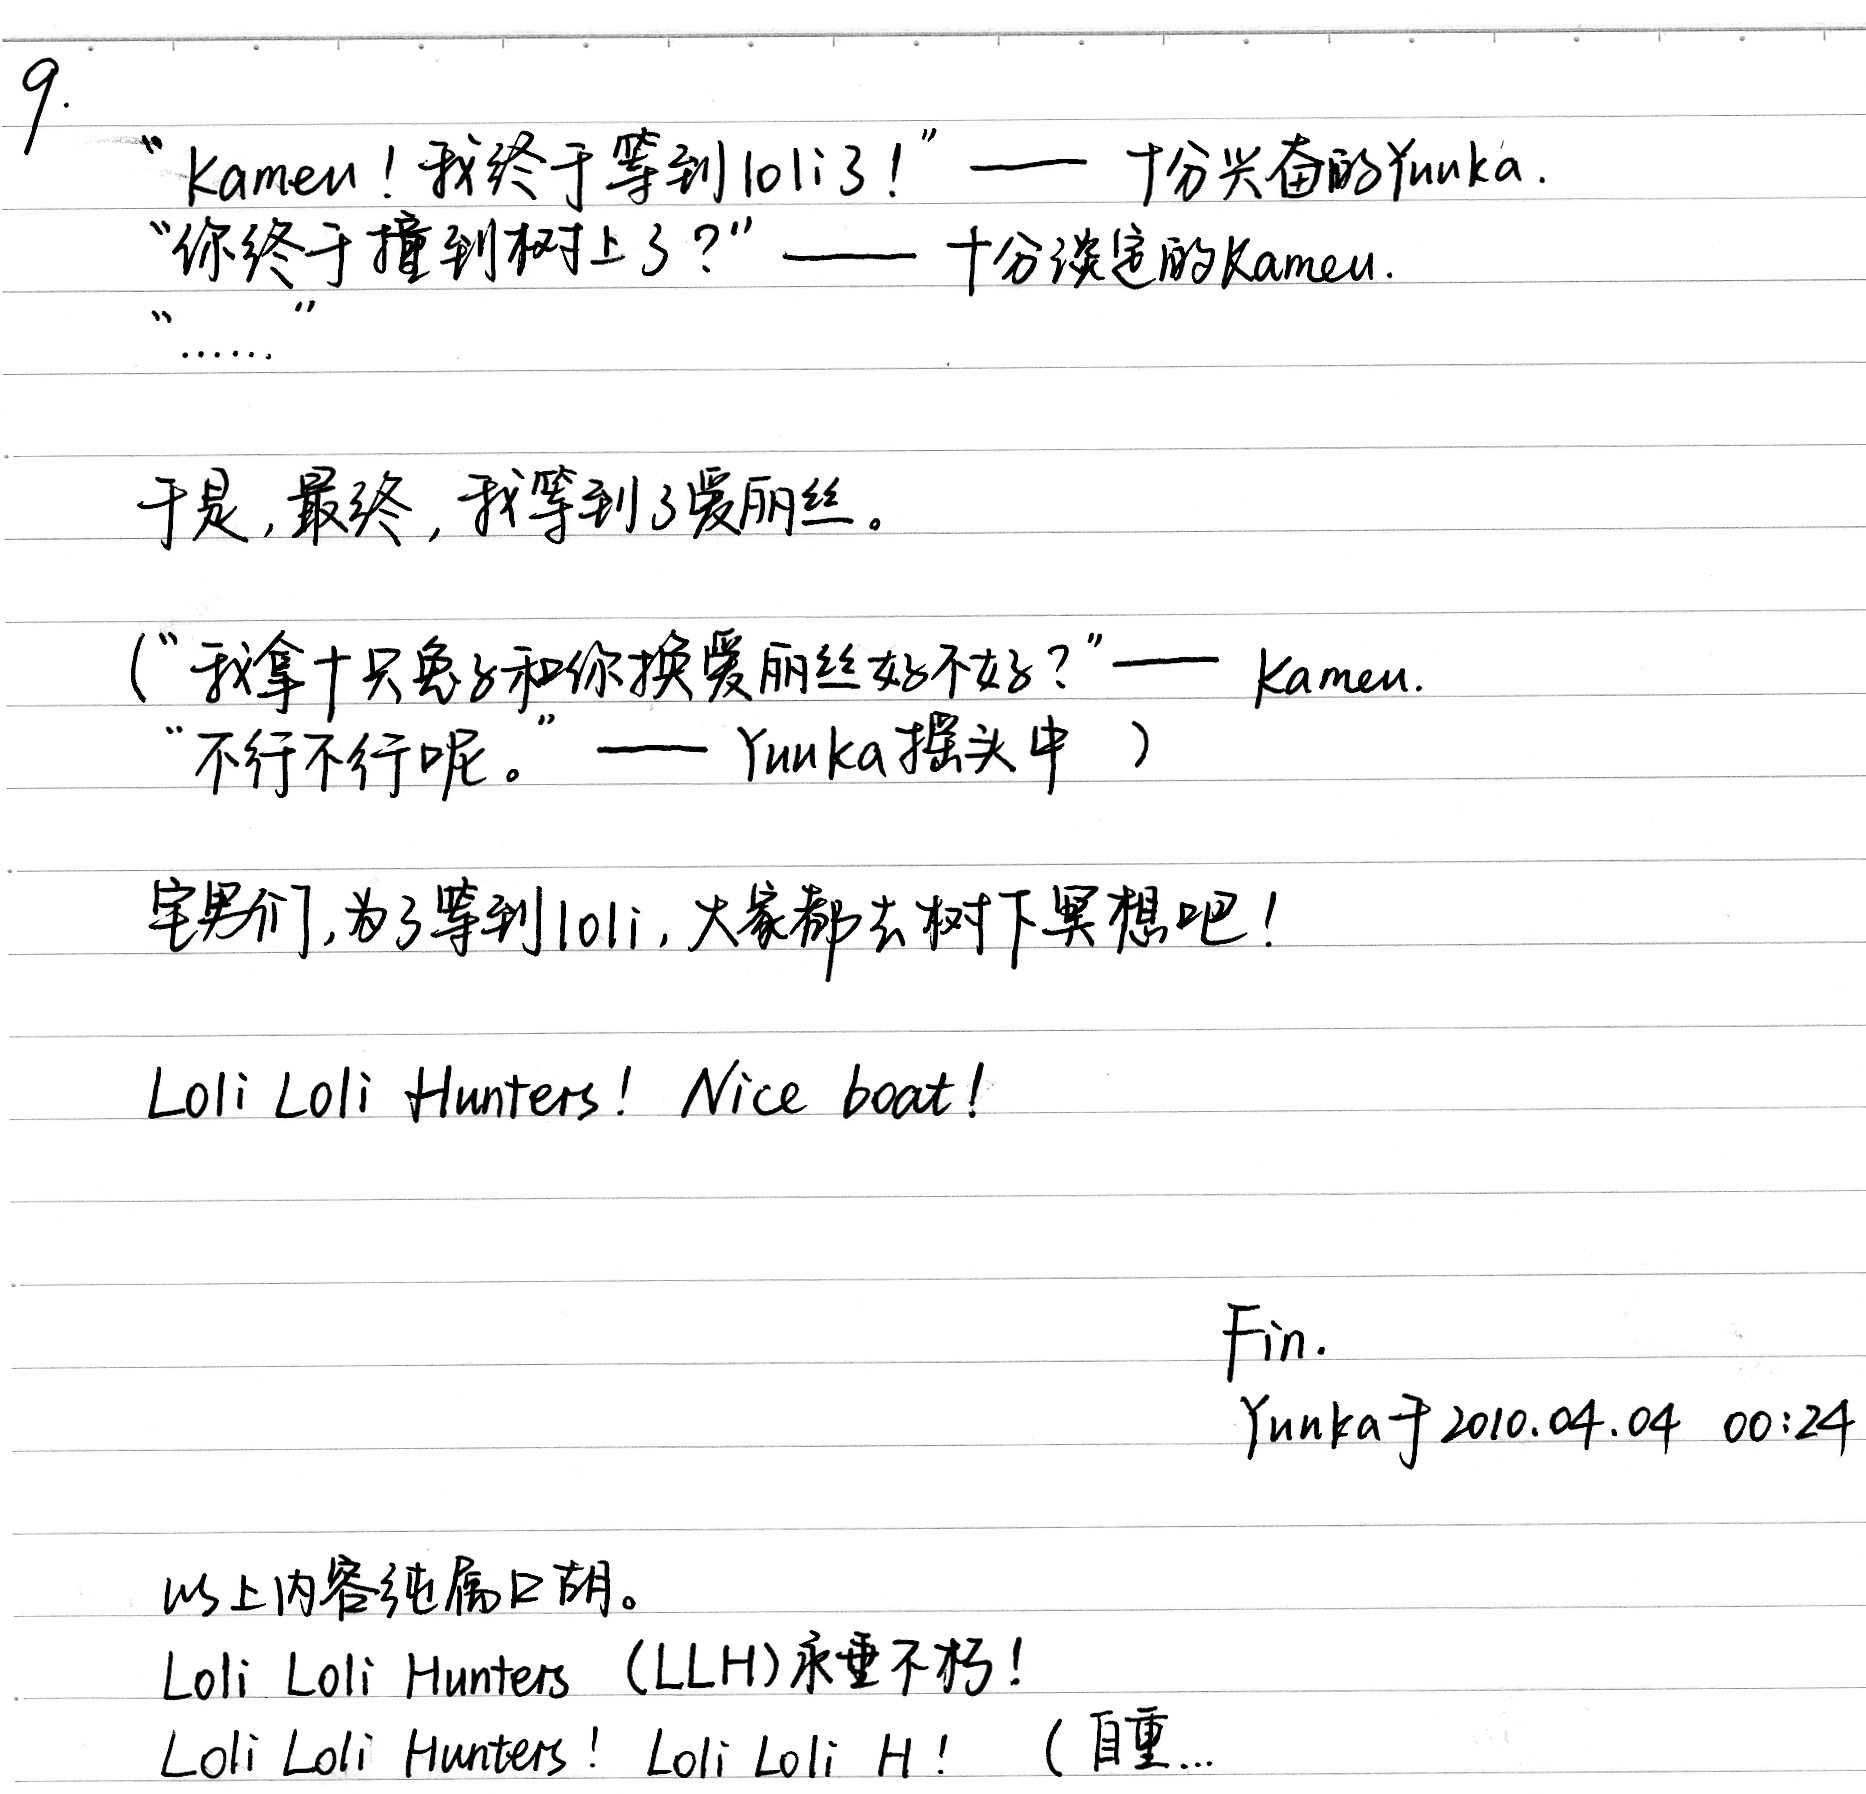 9.
“Kameu！我终于等到loli了！”—— 十分兴奋的Yuuka.
“你终于撞到树上了？”—— 十分淡定的Kameu.
“……”
于是,最终,我等到了爱丽丝。
(“我拿十只兔子和你换爱丽丝好不好？”—— Kameu.
“不行不行呢。”—— Yuuka摇头中 )
宅男们,为了等到loli,大家都去树下冥想吧！
Loli Loli Hunters! Nice boat!
Fin.
Yuuka于2010.04.04 00:24
以上内容纯属口胡。
Loli Loli Hunters (LLH)永垂不朽！
Loli Loli Hunters! Loli Loli H! (自重...